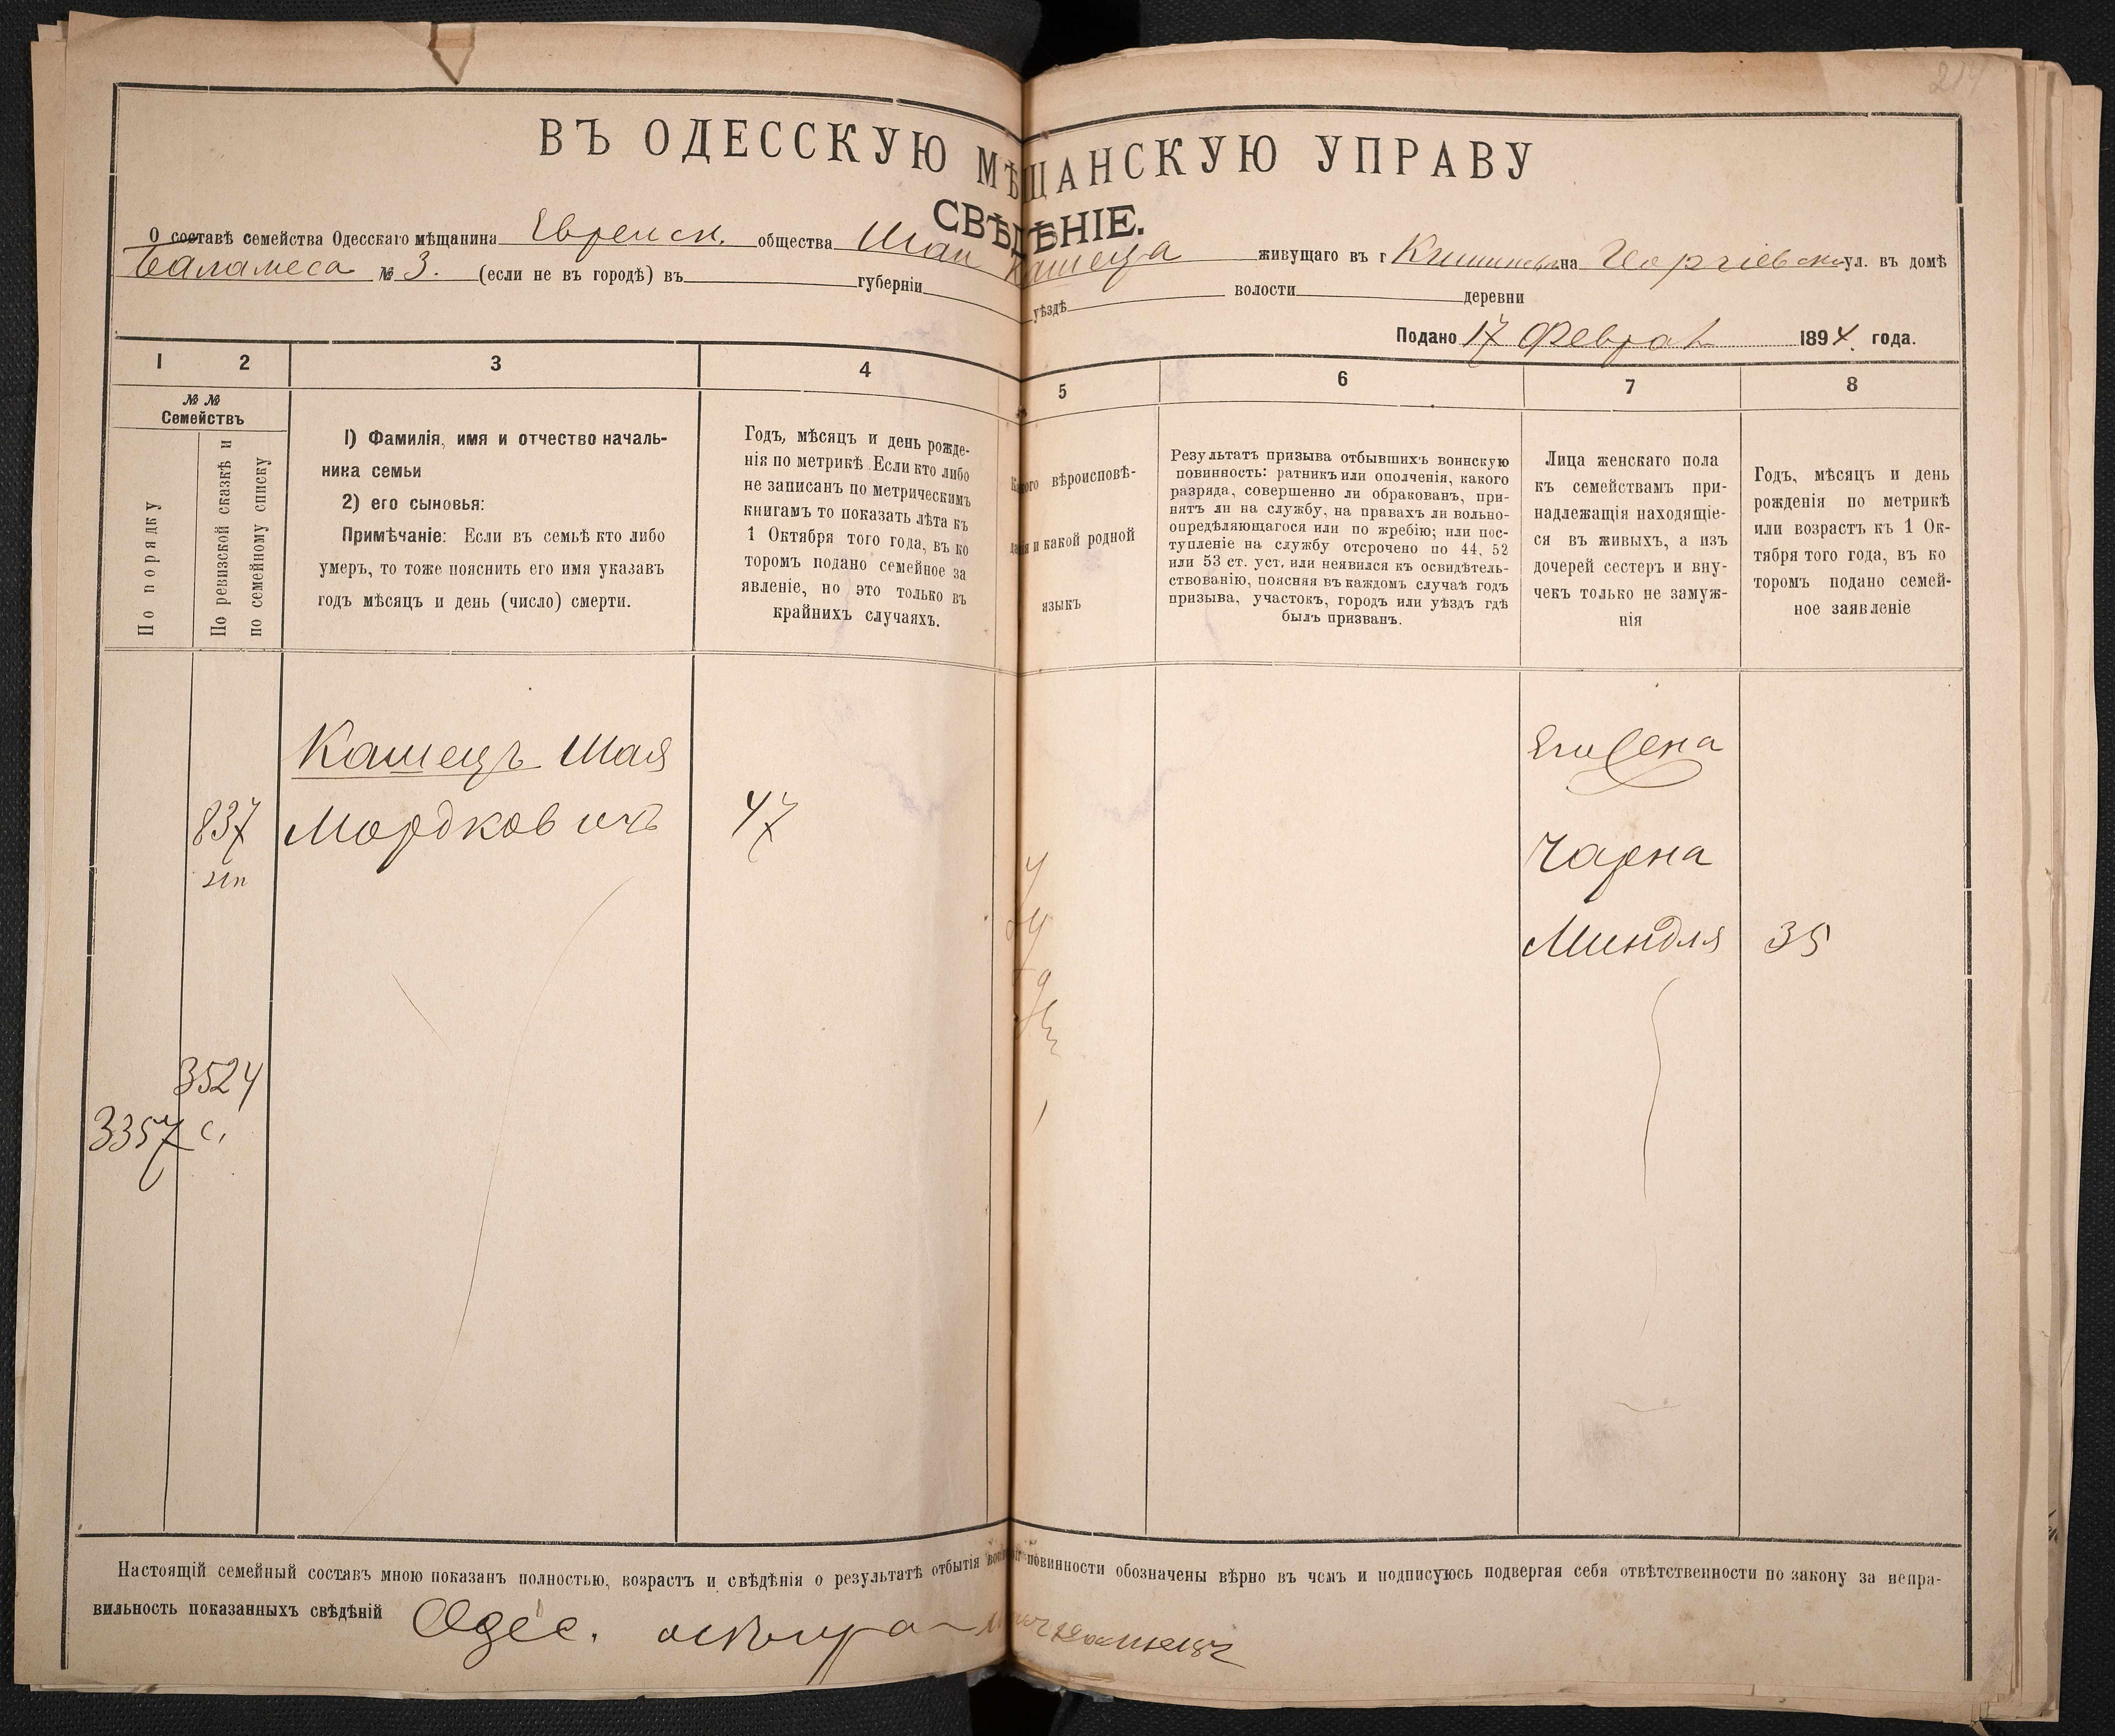 ВЪ ОДЕССКУЮ МѢЩАНСКУЮ УПРАВУ
СВѢДѢНІЕ.
О составѣ семейства Одесскаго мѣщанина Еврейск. общества Шаи Кашеца живущаго въ г Кишиневѣ на Георгіевской ул. въ домѣ
№ 3. (если не въ городѣ) въ губерніи уѣздѣ волости деревни
Подано 17 Феврал 1894. года.
1 2 3 4 5 6 7 8
№ №
Семействъ
По порядку
По ревизской сказкѣ и
по семейному списку
1) Фамилія, имя и отчество началь-
ника семьи
2) его сыновья:
Примѣчаніе: Если въ семьѣ кто либо
умеръ, то тоже пояснить его имя указавъ
годъ мѣсяцъ и день (число) смерти.
Годъ, мѣсяцъ и день рожде-
нія по метрикѣ Если кто либо
не записанъ по метрическимъ
книгамъ то показать лѣта къ
1 Октября того года, въ ко
торомъ подано семейное за
явленіе, но это только въ
крайнихъ случаяхъ.
Какого вѣроисповѣ-
данія и какой родной
языкъ
Результатъ призыва отбывшихъ воинскую
повинность: ратникъ или ополченія, какого
разряда, совершенно ли обракованъ, при-
нятъ ли на службу, на правахъ ли вольно-
опредѣляющагося или по жребію; или пос-
тупленіе на службу отсрочено по 44, 52
или 53 ст. уст. или неявился къ освидѣтель-
ствованію, поясняя въ каждомъ случаѣ годъ
призыва, участокъ, городъ или уѣздъ гдѣ
былъ призванъ.
Лица женскаго пола
къ семействамъ при-
надлежащія находящіе-
ся въ живыхъ, а изъ
дочерей сестеръ и вну-
чекъ только не замуж-
нія
Годъ, мѣсяцъ и день
рожденія по метрикѣ
или возрастъ къ 1 Ок-
тября того года, въ ко
торомъ подано семей-
ное заявленіе
Кашецъ Шая
Его жена
837 Мордковичъ 47
Чарна
Миндля 35
3524
3357 с.
Настоящій семейный составъ мною показанъ полностью, возрастъ и свѣдѣнія о результатѣ отбытія воинской повинности обозначены вѣрно въ чемъ и подписуюсь подвергая себя отвѣтственности по закону за непра-
вильность показанныхъ свѣдѣній Одес.